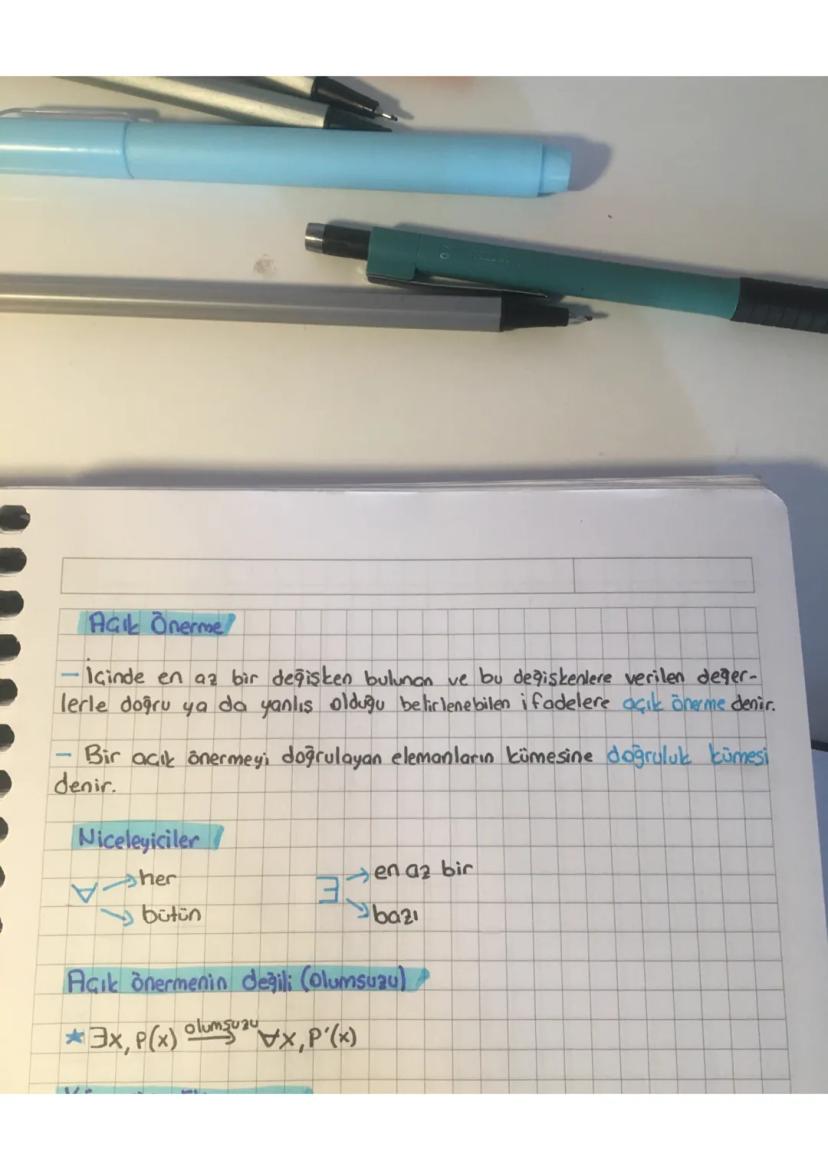 Açık Önerme
– İçinde en az bir değişken bulunan ve bu değişkenlere verilen değer-
lerle doğru ya da yanlış olduğu belirlenebilen ifadelere açık önerme denir.
– Bir açık önermeyi doğrulayan elemanların kümesine doğruluk kümesi
denir.
Niceleyiciler
∀ → her
→ bütün
∃ → en az bir
→ bazı
Açık önermenin değili (olumsuzu)
★ ∃x, P(x) olumsuzu → ∀x, P'(x)